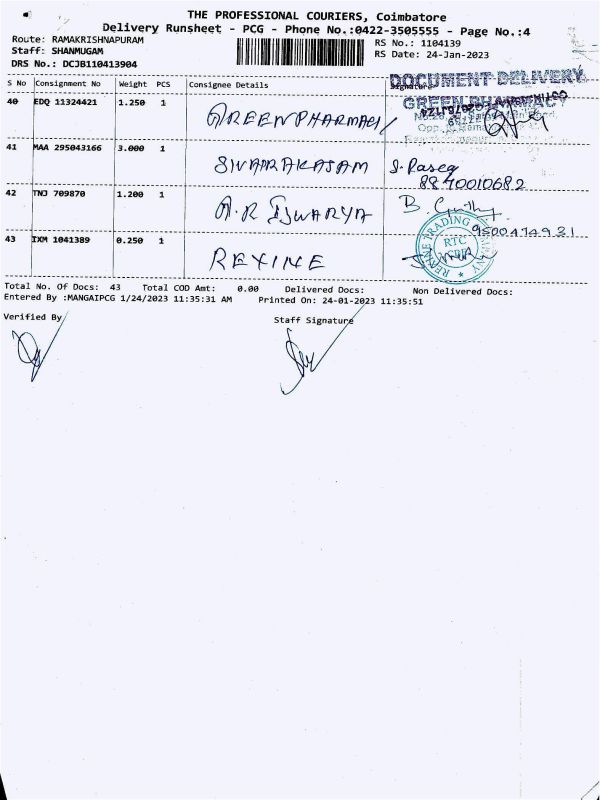 THE PROFESSIONAL COURIERS, Coimbatore
Delivery Runsheet - PCG - Phone No.:0422-3505555 - Page No.:4
Route: RAMAKRISHNAPURAM
Staff: SHANMUGAM
DRS No.: DCJB110413904
RS No.: 1104139
RS Date: 24-Jan-2023
S No Consignment No Weight PCS Consignee Details Signature
DOCUMENT DELIVERY
GREEN PHARMACY
40 EDQ 11324421 1.250 1 GREENPHARMACY
41 MAA 295043166 3.000 1 SIVAPRAKASAM S. Raseq
8870010682
42 TNJ 709870 1.200 1 A.R ISWARYA B.
43 IXM 1041389 0.250 1 REXINE
RTC
Total No. Of Docs: 43 Total COD Amt: 0.00 Delivered Docs: Non Delivered Docs:
Entered By :MANGAIPCG 1/24/2023 11:35:31 AM Printed On: 24-01-2023 11:35:51
Verified By
Staff Signature